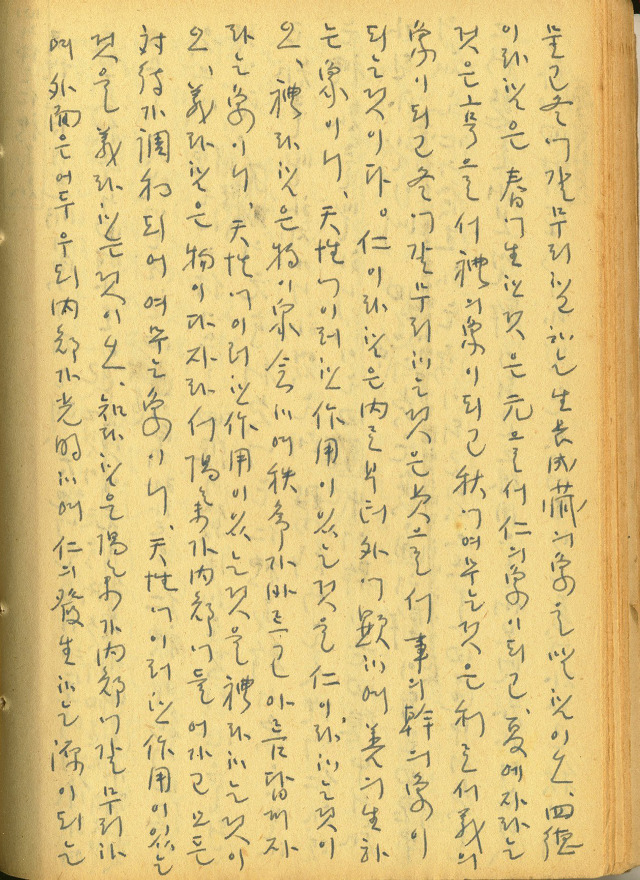 물고 冬에 갈무리함 하는 生長成藏의 象을 말함이오, 四德
이라 함은 春에 生하는 것은 元으로서 仁의 象이 되고, 夏에 자라는
것은 亨으로서 禮의 象이 되고 秋에 여무는 것은 利로서 義의
象이 되고 冬에 갈무리하는 것은 貞으로서 事의 幹의 象이
되는 것이다。仁이라 함은 內로부터 外에 顯하여 善의 生하
는 象이니, 天性에 이러한 作用이 있는 것을 仁이라 하는 것이
오, 禮라 함은 物이 象會하여 秩序가 바르고 아름답게 자
라는 象이니, 天性에 이러한 作用이 있는 것을 禮라 하는 것이
오, 義라 함은 物이 다 자라서 陽氣가 內部에 들어가고 모든
對待가 調和되어 여무는 象이니, 天性에 이러한 作用이 있는
것을 義라 하는 것이오, 知라 함은 陽氣가 內部에 갈무리하
여 外面은 어두우되 內部가 光明하여 仁의 發生하는 源이 되는